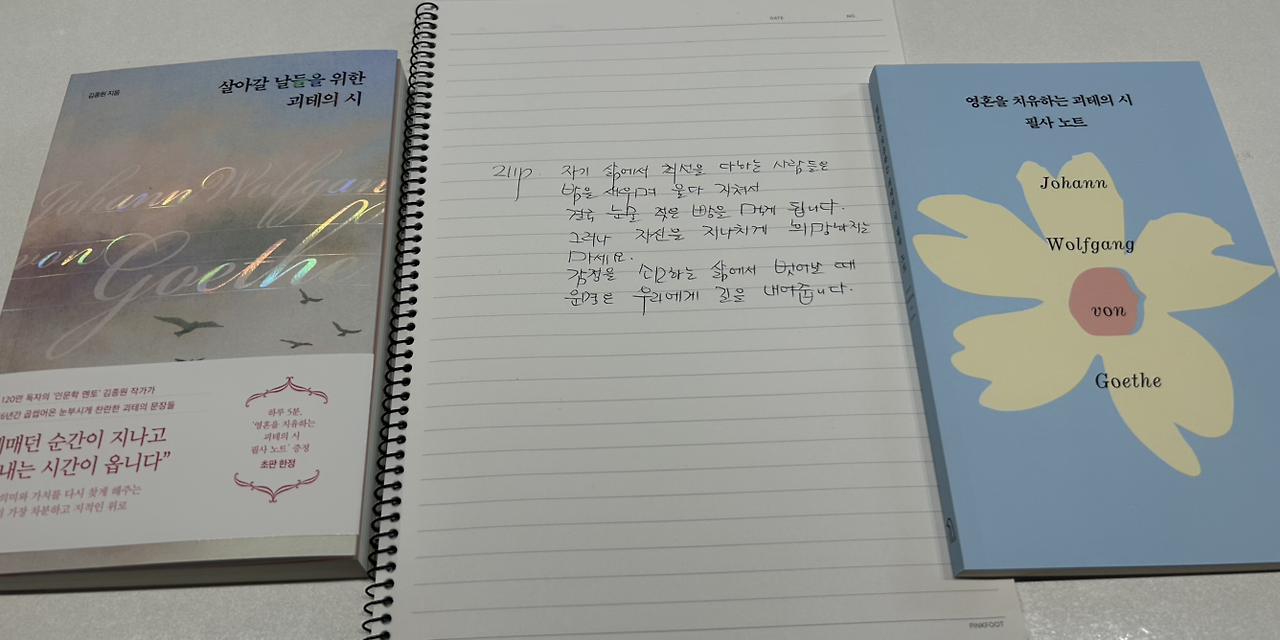 김종원 지음
살아갈 날들을 위한
괴테의 시
Johann Wolfgan
von
Goethe
120만 독자의 '인문학 멘토' 김종원 작가가
6년간 곱씹어온 눈부시게 찬란한 괴테의 문장들
매던 순간이 지나고
내는 시간이 옵니다”
의미와 가치를 다시 찾게 해주는
가장 차분하고 지적인 위로
하루 5분,
'영혼을 치유하는
괴테의 시
필사 노트' 증정
초판 한정
DATE
NO.
211p
자기 삶에서 최선을 다하는 사람들은
밤을 새우며 울다 지쳐서
결국 눈물 젖은 빵을 먹게 됩니다.
그러나 자신을 지나치게 희망하지는
마세요.
감정을 소비하는 삶에서 벗어날 때
운명은 우리에게 길을 내어줍니다.
PINKFOOT
영혼을 치유하는 괴테의 시
필사 노트
Johann
Wolfgang
von
Goethe